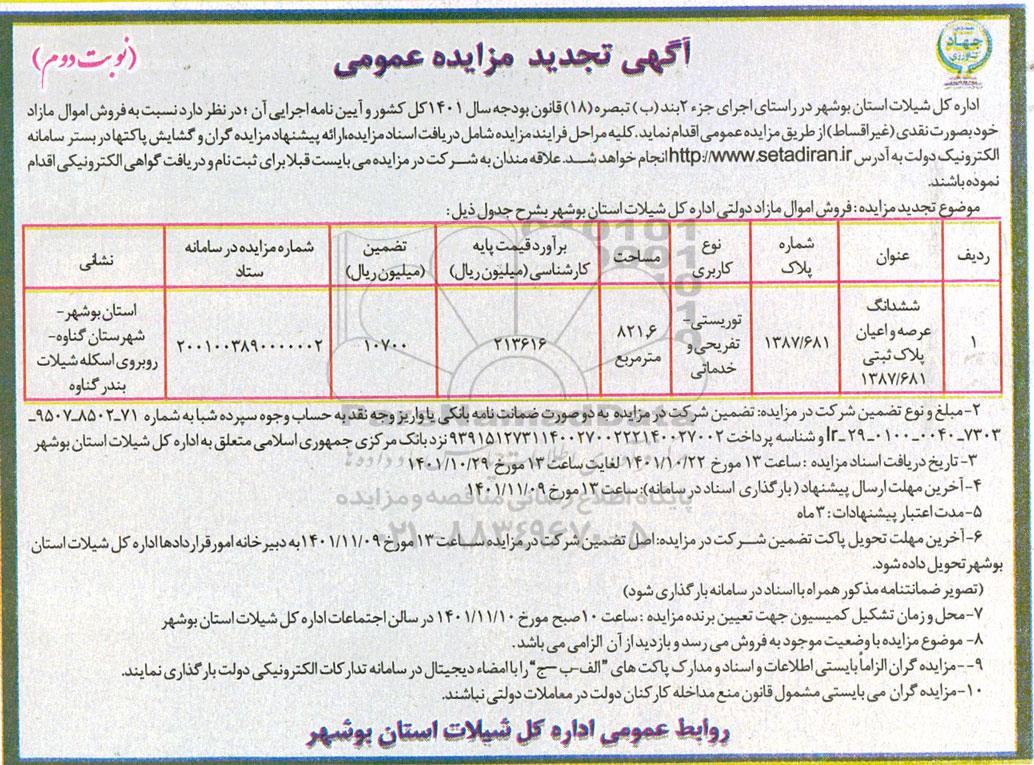 آگهی تجدید مزایده عمومی
(نوبت دوم)
جهاد
اداره کل شیلات استان بوشهر در راستای اجرای جزء ۲بند (ب) تبصره (۱۸) قانون بودجه سال ۱۴۰۱کل کشور و آیین نامه اجرایی آن ؛ در نظر دارد نسبت به فروش اموال مازاد
خود بصورت نقدی (غیر اقساط) از طریق مزایده عمومی اقدام نماید. کلیه مراحل فرایند مزایده شامل دریافت اسناد مزایده،ارائه پیشنهاد مزایده گران و گشایش پاکتها در بستر سامانه
الکترونیک دولت به آدرس http://www.setadiran.ir انجام خواهد شد. علاقه مندان به شرکت در مزایده می بایست قبلا برای ثبت نام و دریافت گواهی الکترونیکی اقدام
نموده باشند.
موضوع تجدید مزایده : فروش اموال مازاد دولتی اداره کل شیلات استان بوشهر بشرح جدول ذیل:
ردیف | عنوان | شماره پلاک | نوع کاربری | مساحت | برآورد قیمت پایه کارشناسی (میلیون ریال) | تضمین (میلیون ریال) | شماره مزایده در سامانه ستاد | نشانی
۱ | ششدانگ عرصه و اعیان پلاک ثبتی ۱۳۸۷/۶۸۱ | ۱۳۸۷/۶۸۱ | توریستی- تفریحی و خدماتی | ۸۲۱,۶ مترمربع | ۲۱۳۶۱۶ | ۱۰۷۰۰ | ۲۰۰۱۰۰۳۸۹۰۰۰۰۰۰۲ | استان بوشهر- شهرستان گناوه- روبروی اسکله شیلات بندر گناوه
۲- مبلغ و نوع تضمین شرکت در مزایده: تضمین شرکت در مزایده به دو صورت ضمانت نامه بانکی یا واریز وجه نقد به حساب وجوه سپرده شبا به شماره ۷۱_۸۵۰۲_۹۵۰۷_
۷۳۰۳_۰۰۴۰_۰۱۰۰_۲۹_Ir و شناسه پرداخت ۹۳۹۱۵۱۲۷۳۱۱۴۰۰۲۷۰۰۲۲۲۱۴۰۰۲۷۰۰۲ نزد بانک مرکزی جمهوری اسلامی متعلق به اداره کل شیلات استان بوشهر
۳- تاریخ دریافت اسناد مزایده : ساعت ۱۳ مورخ ۱۴۰۱/۱۰/۲۲ لغایت ساعت ۱۳ مورخ ۱۴۰۱/۱۰/۲۹
۴- آخرین مهلت ارسال پیشنهاد (بارگذاری اسناد در سامانه): ساعت ۱۳ مورخ ۱۴۰۱/۱۱/۰۹
۵-مدت اعتبار پیشنهادات : ۳ ماه
۶- آخرین مهلت تحویل پاکت تضمین شرکت در مزایده: اصل تضمین شرکت در مزایده تا ساعت ۱۳ مورخ ۱۴۰۱/۱۱/۰۹ به دبیرخانه امور قراردادها اداره کل شیلات استان
بوشهر تحویل داده شود.
(تصویر ضمانتنامه مذکور همراه با اسناد در سامانه بارگذاری شود)
۷-محل و زمان تشکیل کمیسیون جهت تعیین برنده مزایده : ساعت ۱۰ صبح مورخ ۱۴۰۱/۱۱/۱۰ در سالن اجتماعات اداره کل شیلات استان بوشهر
۸- موضوع مزایده با وضعیت موجود به فروش می رسد و بازدید از آن الزامی می باشد.
۹--مزایده گران الزاماً بایستی اطلاعات و اسناد و مدارک پاکت های "الف-ب-ج" را با امضاء دیجیتال در سامانه تدارکات الکترونیکی دولت بارگذاری نمایند.
۱۰-مزایده گران می بایستی مشمول قانون منع مداخله کارکنان دولت در معاملات دولتی نباشند.
روابط عمومی اداره کل شیلات استان بوشهر
پایگاه اطلاع رسانی مناقصه و مزایده
۰۲۱-۸۸۳۴۹۶۷۰-۵